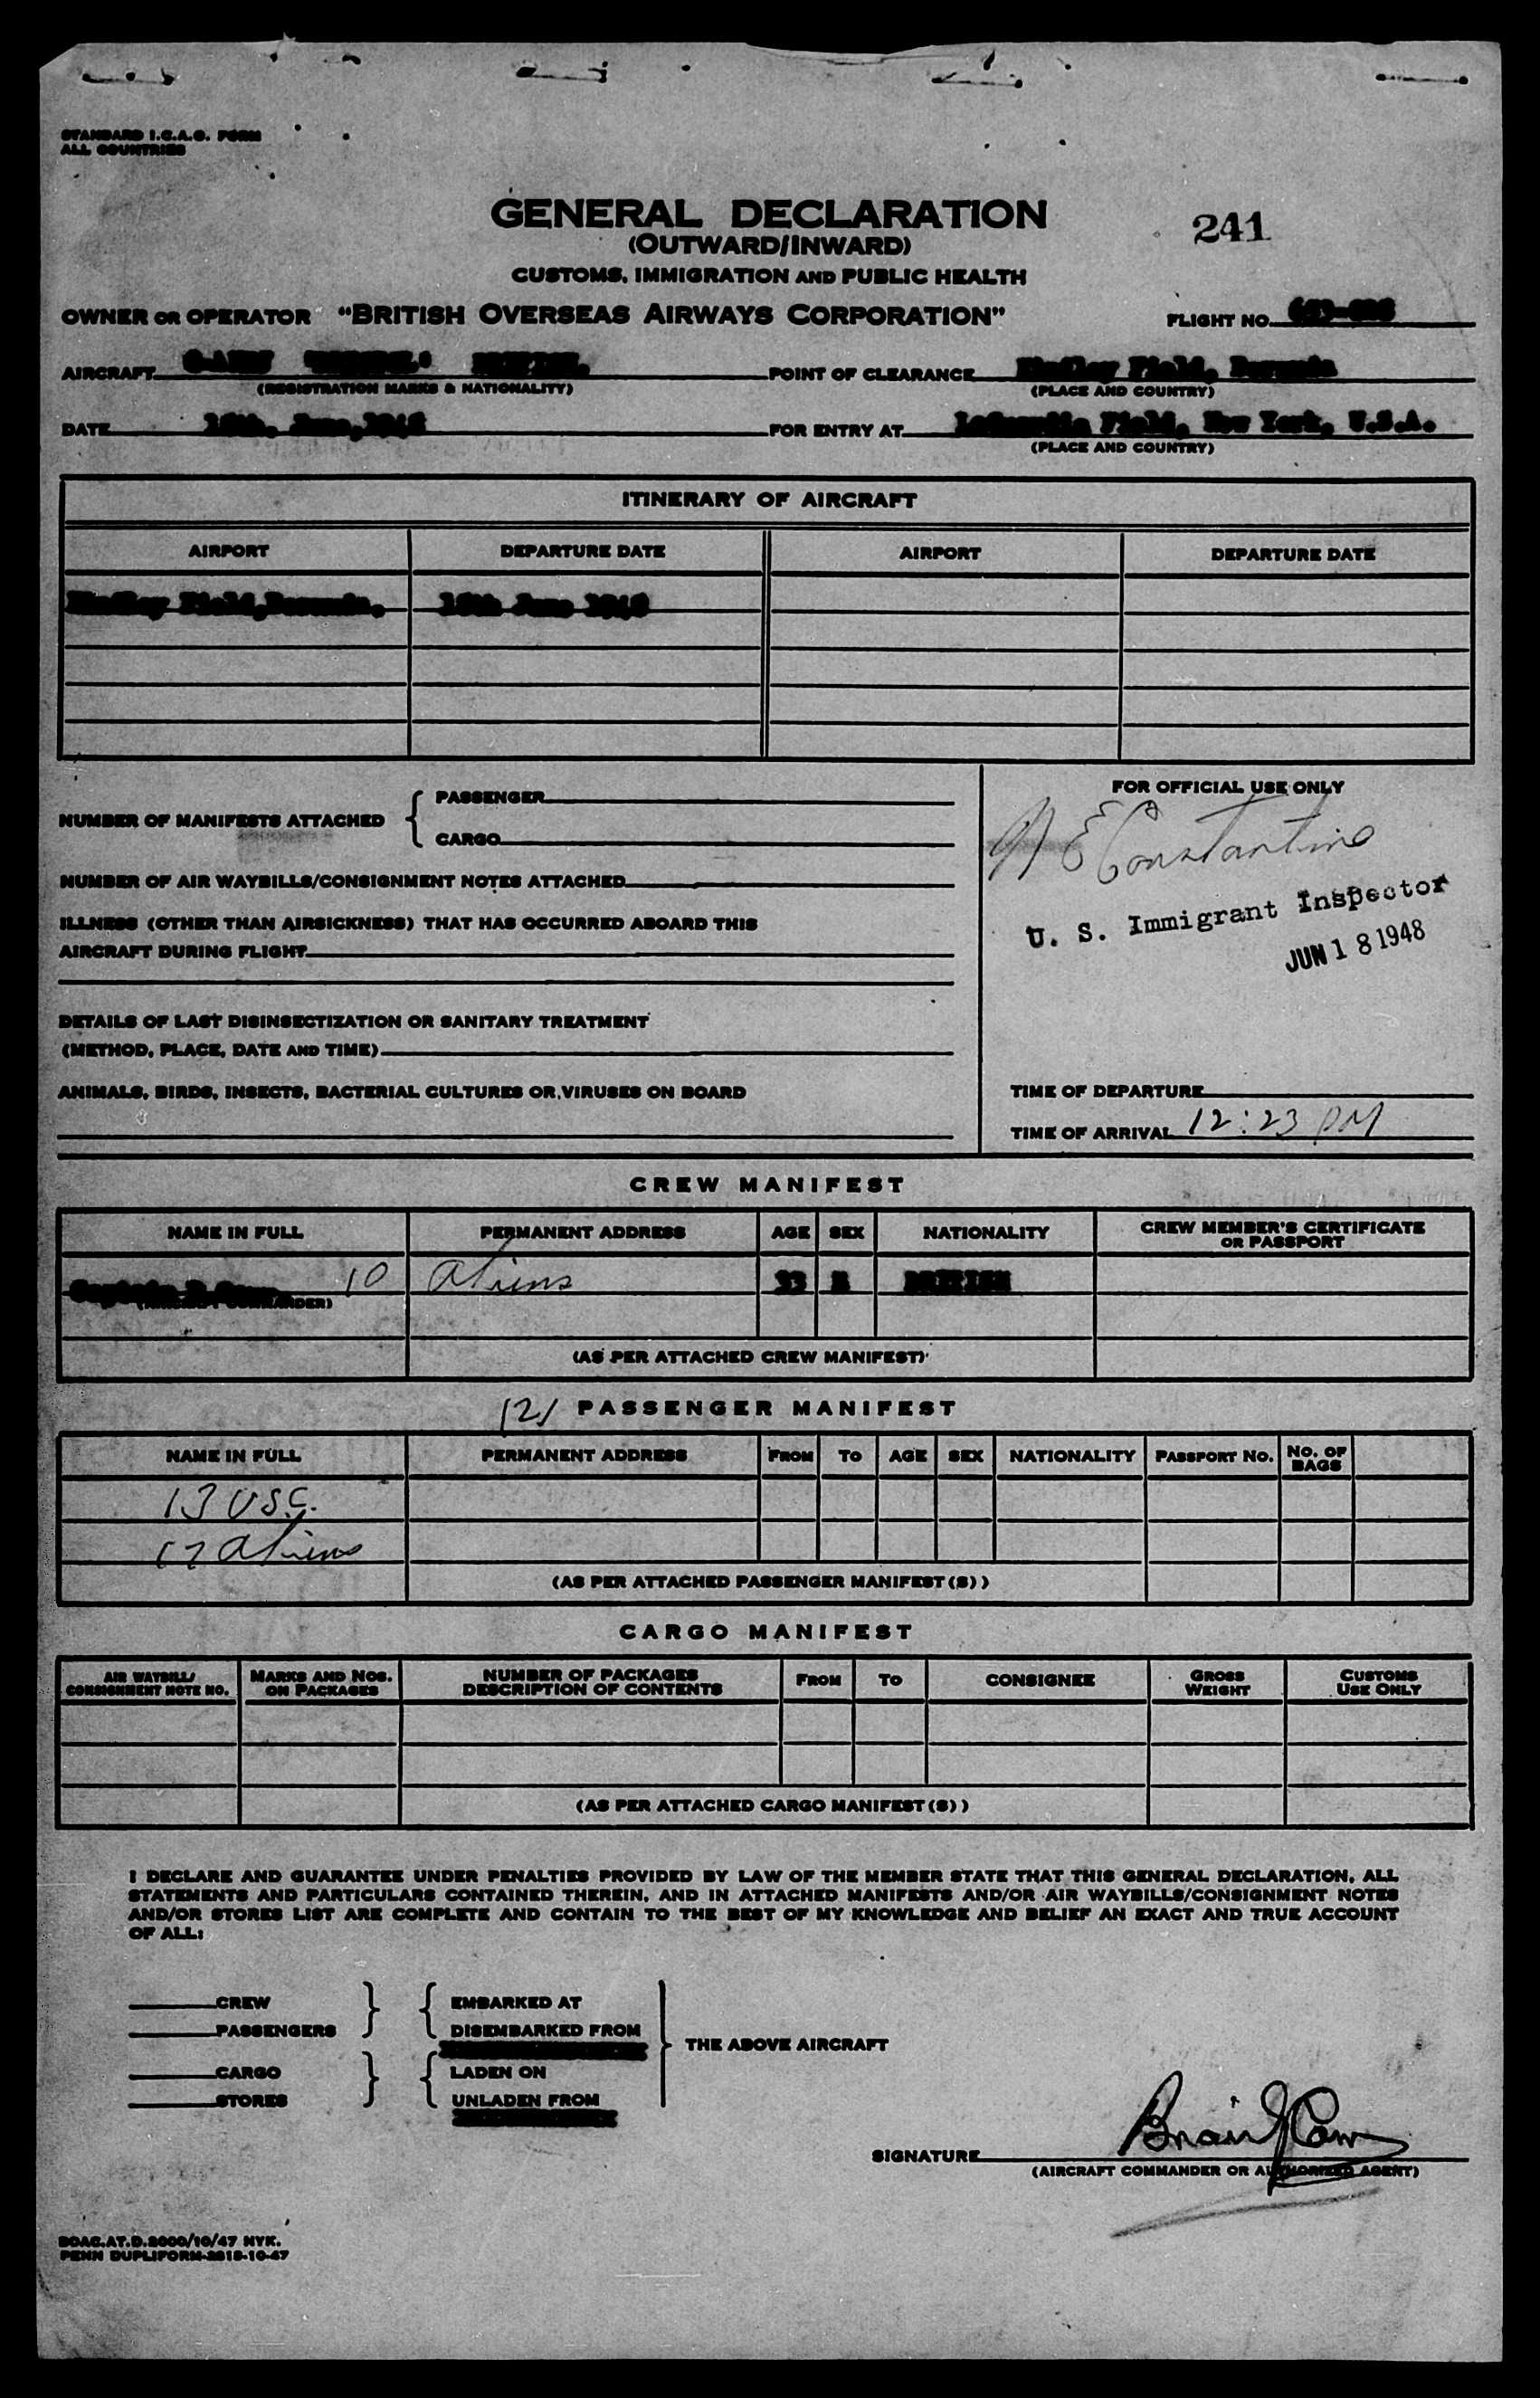 STANDARD I.C.A.O. FORM
ALL COUNTRIES
GENERAL DECLARATION
241
(OUTWARD/INWARD)
CUSTOMS, IMMIGRATION AND PUBLIC HEALTH
OWNER OR OPERATOR "BRITISH OVERSEAS AIRWAYS CORPORATION"
FLIGHT NO.
AIRCRAFT
POINT OF CLEARANCE Kindley Field, Bermuda
(REGISTRATION MARKS & NATIONALITY)
(PLACE AND COUNTRY)
DATE 18th. June, 1948
FOR ENTRY AT LaGuardia Field, New York, U.S.A.
(PLACE AND COUNTRY)
ITINERARY OF AIRCRAFT
AIRPORT DEPARTURE DATE AIRPORT DEPARTURE DATE
Kindley Field, Bermuda. 18th June 1948
FOR OFFICIAL USE ONLY
NUMBER OF MANIFESTS ATTACHED
PASSENGER
CARGO
N E Constantine
NUMBER OF AIR WAYBILLS/CONSIGNMENT NOTES ATTACHED
U. S. Immigrant Inspector
ILLNESS (OTHER THAN AIRSICKNESS) THAT HAS OCCURRED ABOARD THIS
AIRCRAFT DURING FLIGHT
JUN 18 1948
DETAILS OF LAST DISINSECTIZATION OR SANITARY TREATMENT
(METHOD, PLACE, DATE AND TIME)
ANIMALS, BIRDS, INSECTS, BACTERIAL CULTURES OR VIRUSES ON BOARD
TIME OF DEPARTURE
TIME OF ARRIVAL 12:23 PM
CREW MANIFEST
NAME IN FULL PERMANENT ADDRESS AGE SEX NATIONALITY CREW MEMBER'S CERTIFICATE OR PASSPORT
Captain 10 aliens 33 M BRITISH
(AIRCRAFT COMMANDER)
(AS PER ATTACHED CREW MANIFEST)
PASSENGER MANIFEST
NAME IN FULL PERMANENT ADDRESS FROM TO AGE SEX NATIONALITY PASSPORT NO. NO. OF BAGS
13 USC.
17 aliens
(AS PER ATTACHED PASSENGER MANIFEST(S))
CARGO MANIFEST
AIR WAYBILL/ CONSIGNMENT NOTE NO. MARKS AND NOS. ON PACKAGES NUMBER OF PACKAGES DESCRIPTION OF CONTENTS FROM TO CONSIGNEE GROSS WEIGHT CUSTOMS USE ONLY
(AS PER ATTACHED CARGO MANIFEST(S))
I DECLARE AND GUARANTEE UNDER PENALTIES PROVIDED BY LAW OF THE MEMBER STATE THAT THIS GENERAL DECLARATION, ALL
STATEMENTS AND PARTICULARS CONTAINED THEREIN, AND IN ATTACHED MANIFESTS AND/OR AIR WAYBILLS/CONSIGNMENT NOTES
AND/OR STORES LIST ARE COMPLETE AND CONTAIN TO THE BEST OF MY KNOWLEDGE AND BELIEF AN EXACT AND TRUE ACCOUNT
OF ALL:
CREW EMBARKED AT
PASSENGERS DISEMBARKED FROM
THE ABOVE AIRCRAFT
CARGO LADEN ON
STORES UNLADEN FROM
SIGNATURE
(AIRCRAFT COMMANDER OR AUTHORIZED AGENT)
BOAC.AT.D.2000/10/47 NYK.
PENN DUPLIFORM-2818-10-47